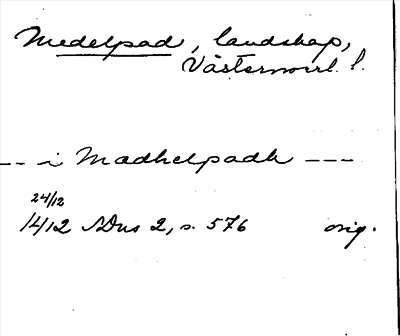 Medelpad, landskap,
Västernorrl. l.
-- i Madhelpadh ---
24/12
1412 SDns 2, s. 576 orig.